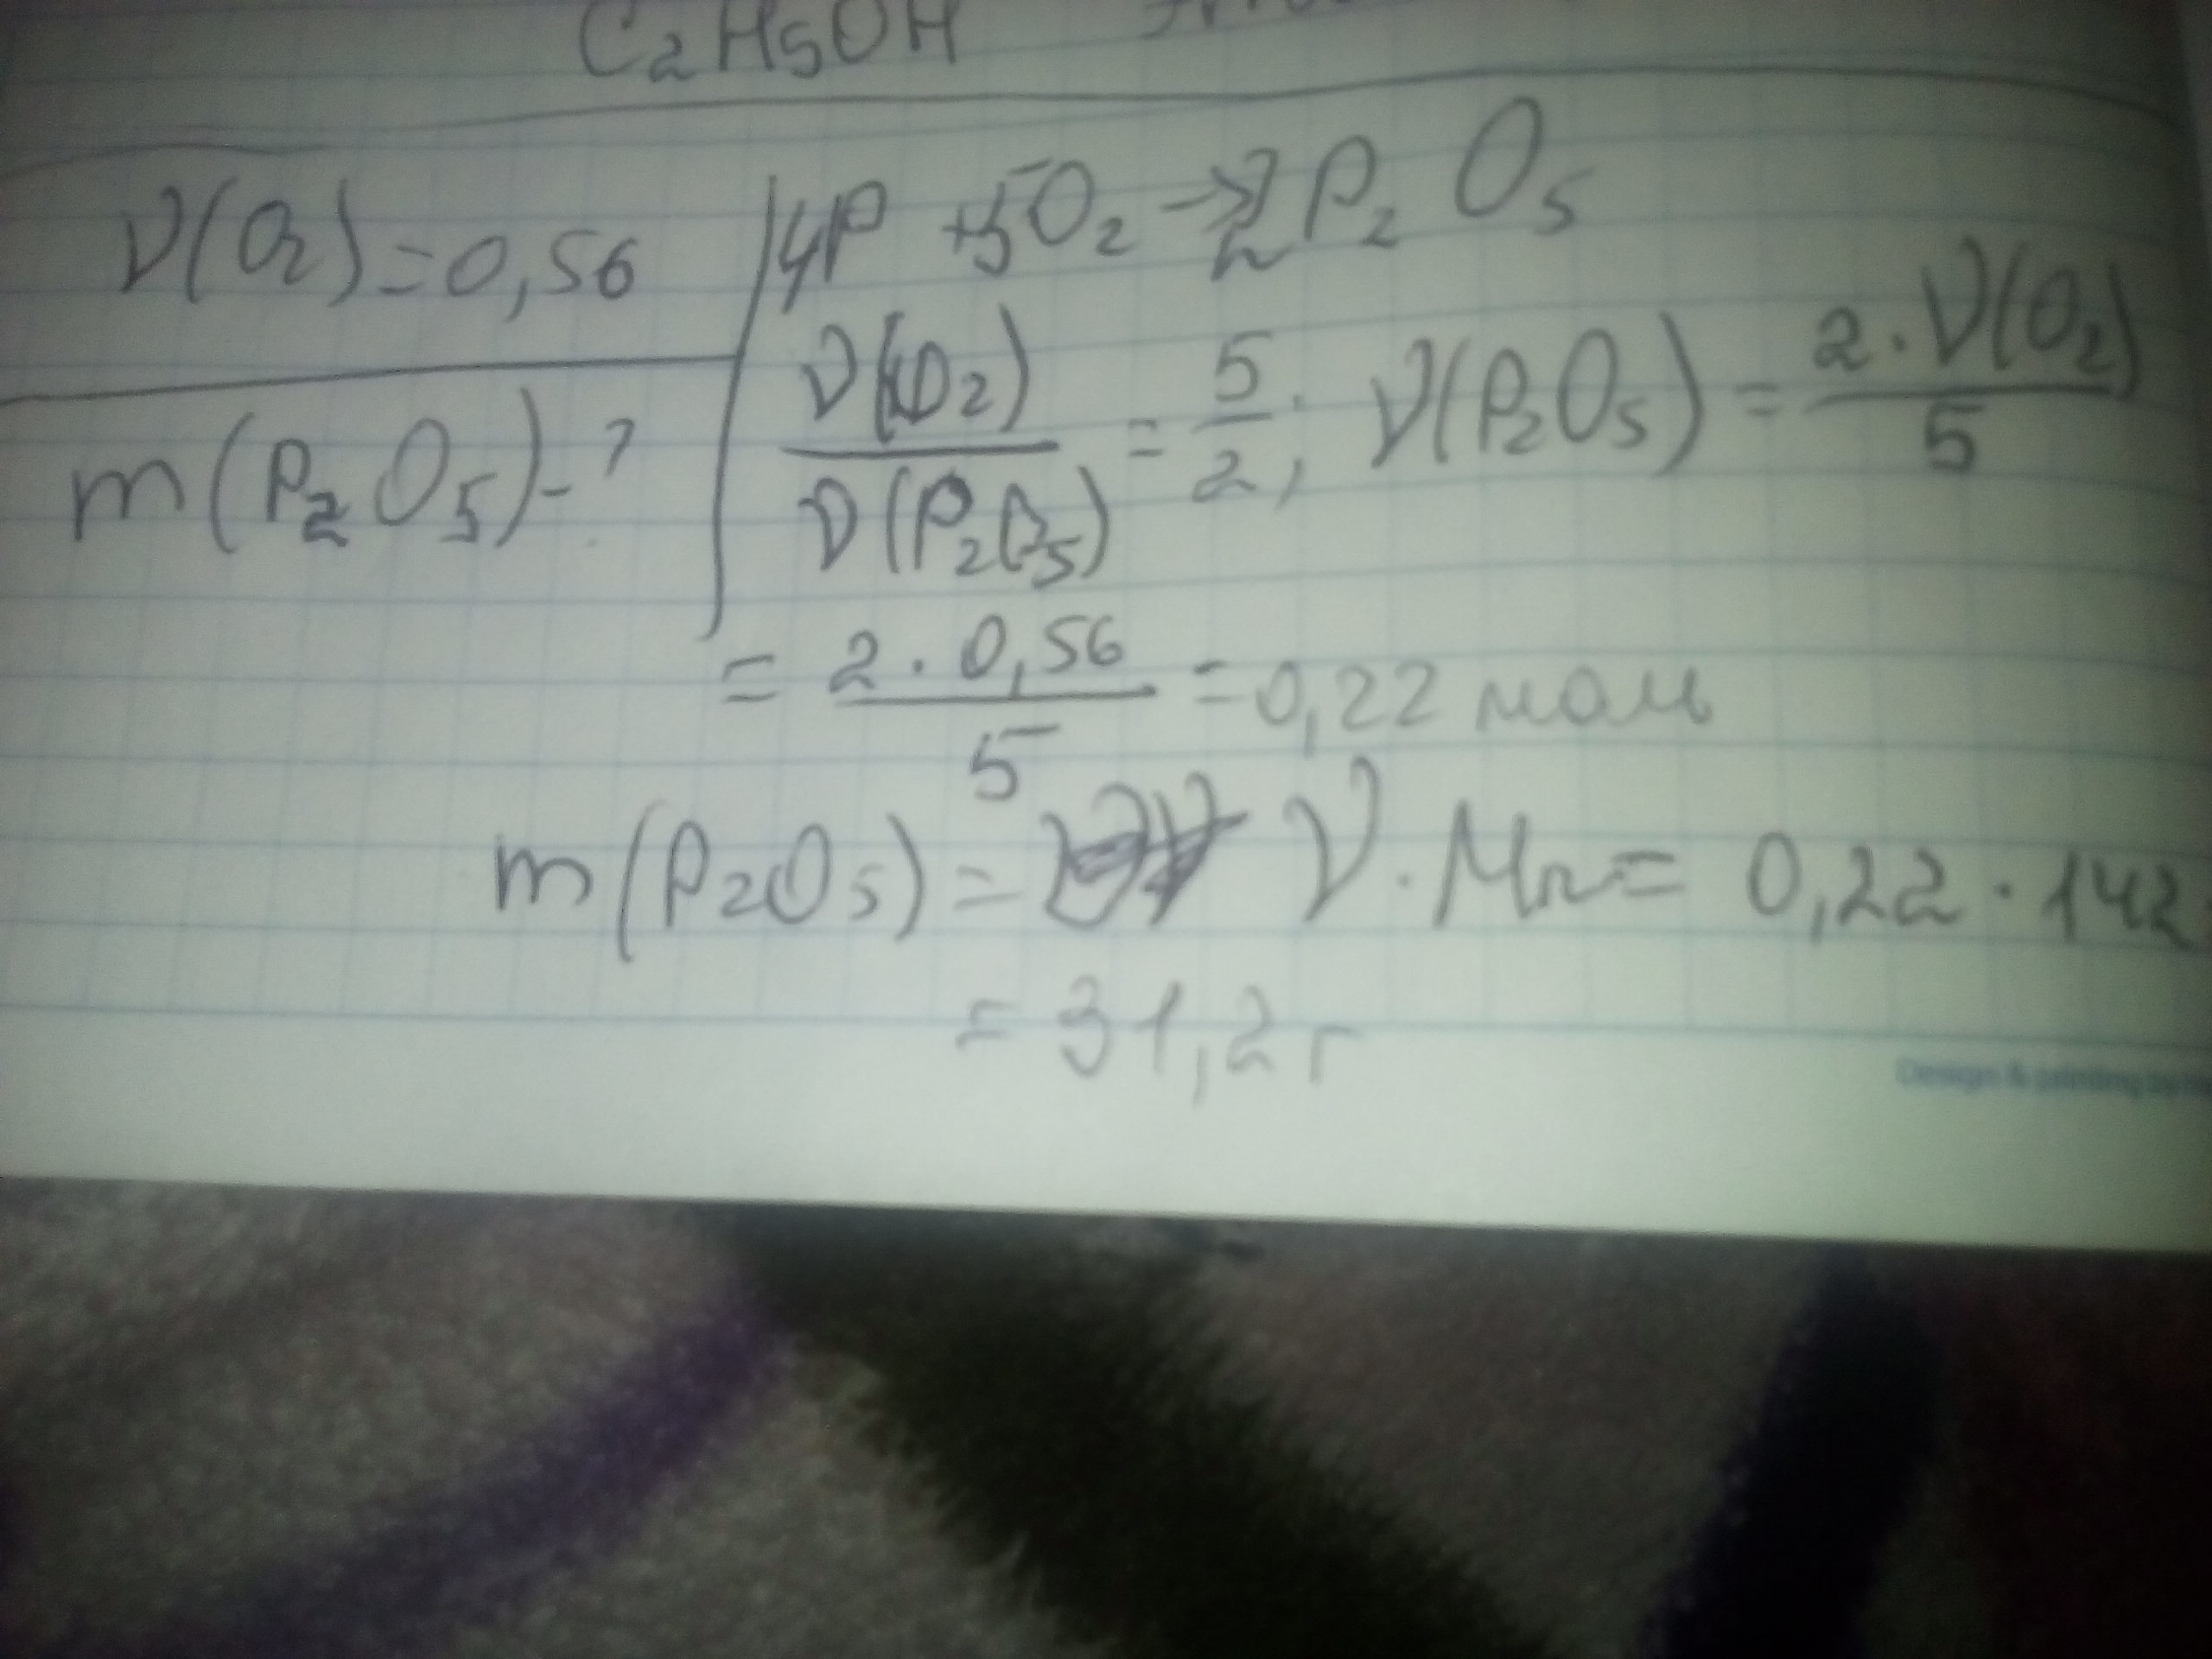 C₂H₅OH
ν(O₂)=0,56
m(P₂O₅)-?
4P + 5O₂ → 2P₂O₅
ν(O₂)/ν(P₂O₅) = 5/2, ν(P₂O₅) = 2·ν(O₂)/5
= 2·0,56/5 = 0,22 моль
m(P₂O₅) = ν·Mr = 0,22·142
= 31,2г
Design & printing by